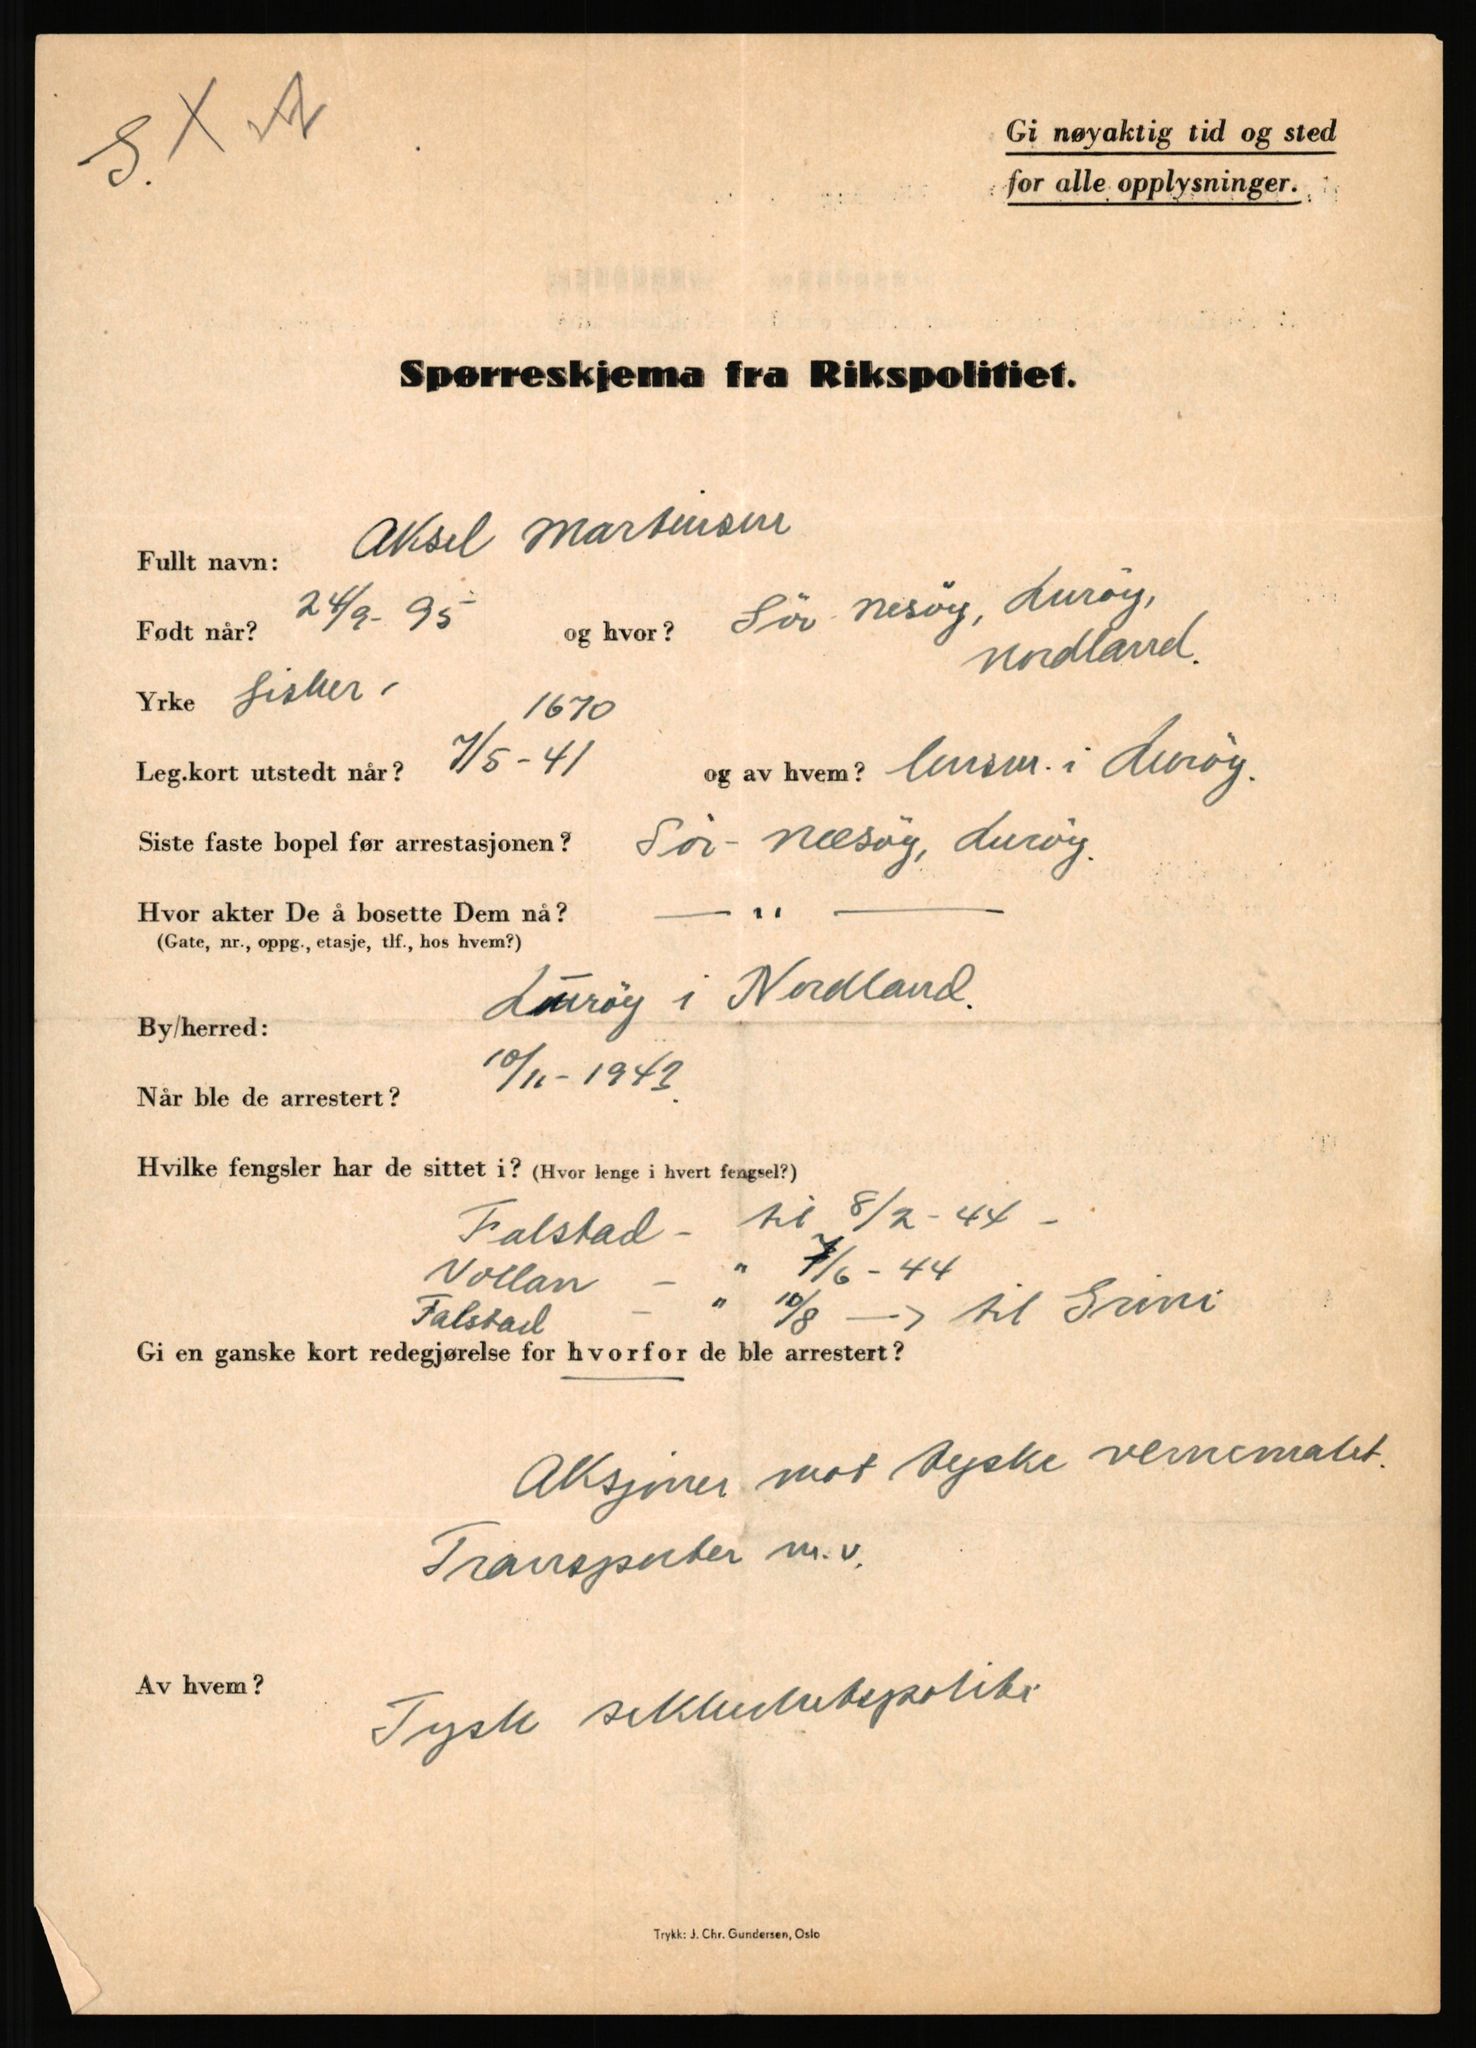 S. X A
Gi nøyaktig tid og sted
for alle opplysninger.
Spørreskjema fra Rikspolitiet.
Fullt navn: Aksel Martinsen
Født når? 24/9- 95 og hvor? Sör Nesöy, Luröy,
Nordland.
Yrke fisker.
1670
Leg.kort utstedt når? 7/5 - 41 og av hvem? lensm. i Luröy.
Siste faste bopel før arrestasjonen? Sör- Nesöy, Luröy.
Hvor akter De å bosette Dem nå? — " —
(Gate, nr., oppg., etasje, tlf., hos hvem?)
By/herred: Luröy i Nordland.
Når ble de arrestert? 10/11 - 1943.
Hvilke fengsler har de sittet i? (Hvor lenge i hvert fengsel?)
Falstad - til 8/2 - 44 -
Vollan - " 7/6 - 44
Falstad - " 10/8 —> til Grini
Gi en ganske kort redegjørelse for hvorfor de ble arrestert?
Aksjoner mot tyske vernemakt.
Transporter m.v.
Av hvem? Tysk sikkerhetspoliti
Trykk: J. Chr. Gundersen, Oslo